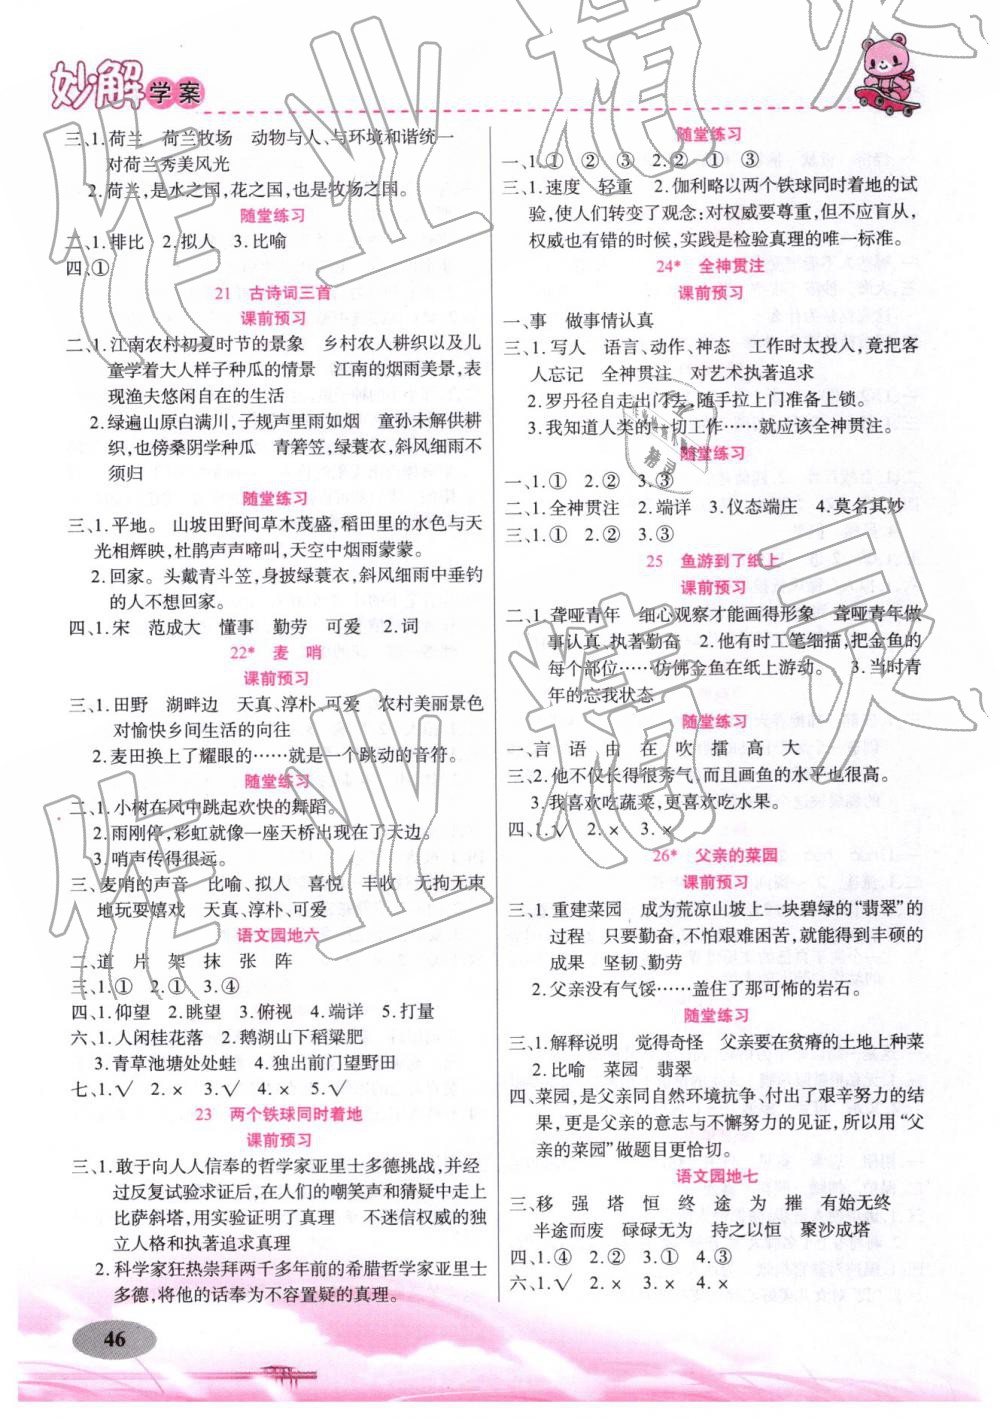 妙解学案
三、1.荷兰 荷兰牧场 动物与人、与环境和谐统一
对荷兰秀美风光
2.荷兰,是水之国,花之国,也是牧场之国。
随堂练习
二、1.排比 2.拟人 3.比喻
四、①
21 古诗词三首
课前预习
二、1.江南农村初夏时节的景象 乡村农人耕织以及儿
童学着大人样子种瓜的情景 江南的烟雨美景,表
现渔夫悠闲自在的生活
2.绿遍山原白满川,子规声里雨如烟 童孙未解供耕
织,也傍桑阴学种瓜 青箬笠,绿蓑衣,斜风细雨不
须归
随堂练习
三、1.平地。 山坡田野间草木茂盛,稻田里的水色与天
光相辉映,杜鹃声声啼叫,天空中烟雨蒙蒙。
2.回家。头戴青斗笠,身披绿蓑衣,斜风细雨中垂钓
的人不想回家。
四、1.宋 范成大 懂事 勤劳 可爱 2.词
22* 麦 哨
课前预习
三、1.田野 湖畔边 天真、淳朴、可爱 农村美丽景色
对愉快乡间生活的向往
2.麦田换上了耀眼的……就是一个跳动的音符。
随堂练习
二、1.小树在风中跳起欢快的舞蹈。
2.雨刚停,彩虹就像一座天桥出现在了天边。
3.哨声传得很远。
三、麦哨的声音 比喻、拟人 喜悦 丰收 无拘无束
地玩耍嬉戏 天真、淳朴、可爱
语文园地六
二、道 片 架 抹 张 阵
三、1.① 2.① 3.④
四、1.仰望 2.眺望 3.俯视 4.端详 5.打量
六、1.人闲桂花落 2.鹅湖山下稻粱肥
3.青草池塘处处蛙 4.独出前门望野田
七、1.√ 2.× 3.√ 4.× 5.√
23 两个铁球同时着地
课前预习
三、1.敢于向人人信奉的哲学家亚里士多德挑战,并经
过反复试验求证后,在人们的嘲笑声和猜疑中走上
比萨斜塔,用实验证明了真理 不迷信权威的独
立人格和执著追求真理
2.科学家狂热崇拜两千多年前的希腊哲学家亚里士
多德,将他的话奉为不容置疑的真理。
46
随堂练习
一、1.① ② ③ 2.② ① ③
三、1.速度 轻重 2.伽利略以两个铁球同时着地的试
验,使人们转变了观念:对权威要尊重,但不应盲从,
权威也有错的时候,实践是检验真理的唯一标准。
24* 全神贯注
课前预习
一、事 做事情认真
三、1.写人 语言、动作、神态 工作时太投入,竟把客
人忘记 全神贯注 对艺术执著追求
2.罗丹径自走出门去,随手拉上门准备上锁。
3.我知道人类的一切工作……就应该全神贯注。
随堂练习
一、1.① 2.② 3.③
二、1.全神贯注 2.端详 3.仪态端庄 4.莫名其妙
三、1.① 2.③ 3.③
25 鱼游到了纸上
课前预习
二、1.聋哑青年 细心观察才能画得形象 聋哑青年做
事认真、执著勤奋 2.他有时工笔细描,把金鱼的
每个部位……仿佛金鱼在纸上游动。 3.当时青
年的忘我状态
随堂练习
一、言 语 由 在 吹 擂 高 大
三、2.他不仅长得很秀气,而且画鱼的水平也很高。
3.我喜欢吃蔬菜,更喜欢吃水果。
四、1.√ 2.× 3.×
26* 父亲的菜园
课前预习
三、1.重建菜园 成为荒凉山坡上一块碧绿的“翡翠”的
过程 只要勤奋,不怕艰难困苦,就能得到丰硕的
成果 坚韧、勤劳
2.父亲没有气馁……盖住了那可怖的岩石。
随堂练习
三、1.解释说明 觉得奇怪 父亲要在贫瘠的土地上种菜
2.比喻 菜园 翡翠
四、菜园,是父亲同自然环境抗争、付出了艰辛努力的结
果,更是父亲的意志与不懈努力的见证,所以用“父
亲的菜园”做题目更恰切。
语文园地七
三、移 强 塔 恒 终 途 为 摧 有始无终
半途而废 碌碌无为 持之以恒 聚沙成塔
四、1.④ 2.② 3.① 4.③
六、1.√ 2.× 3.× 4.×
作业精灵
作业精灵